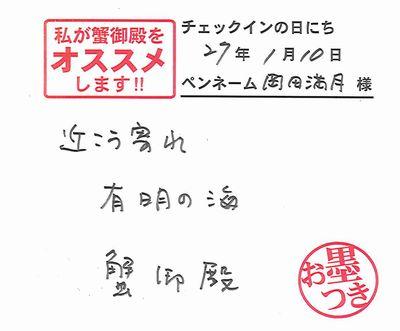 私が蟹御殿を
オススメ
します!!
チェックインの日にち
27年 1月10日
ペンネーム 岡田満月 様
近こう寄れ
有明の海
蟹御殿
お墨つき